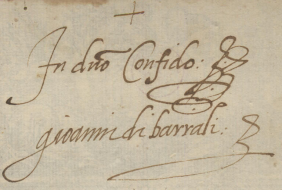 +
In duō Confido:
gioanni di barrali: